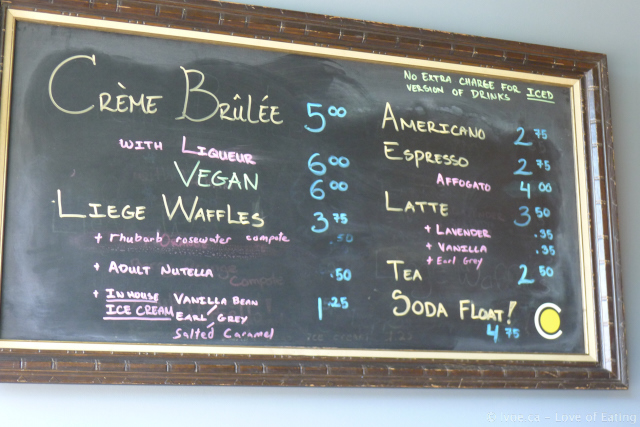 CRÈME BRÛLÉE 5.00
WITH LIQUEUR 6.00
VEGAN 6.00
LIEGE WAFFLES 3.75
+ rhubarb rosewater compote .50
+ ADULT NUTELLA .50
+ IN HOUSE VANILLA BEAN 1.25
ICE CREAM EARL GREY
Salted Caramel
NO EXTRA CHARGE FOR ICED
VERSION OF DRINKS
AMERICANO 2.75
ESPRESSO 2.75
AFFOGATO 4.00
LATTE 3.50
+ LAVENDER .35
+ VANILLA .35
+ Earl Grey
TEA 2.50
SODA FLOAT!
4.75
- Love of Eating